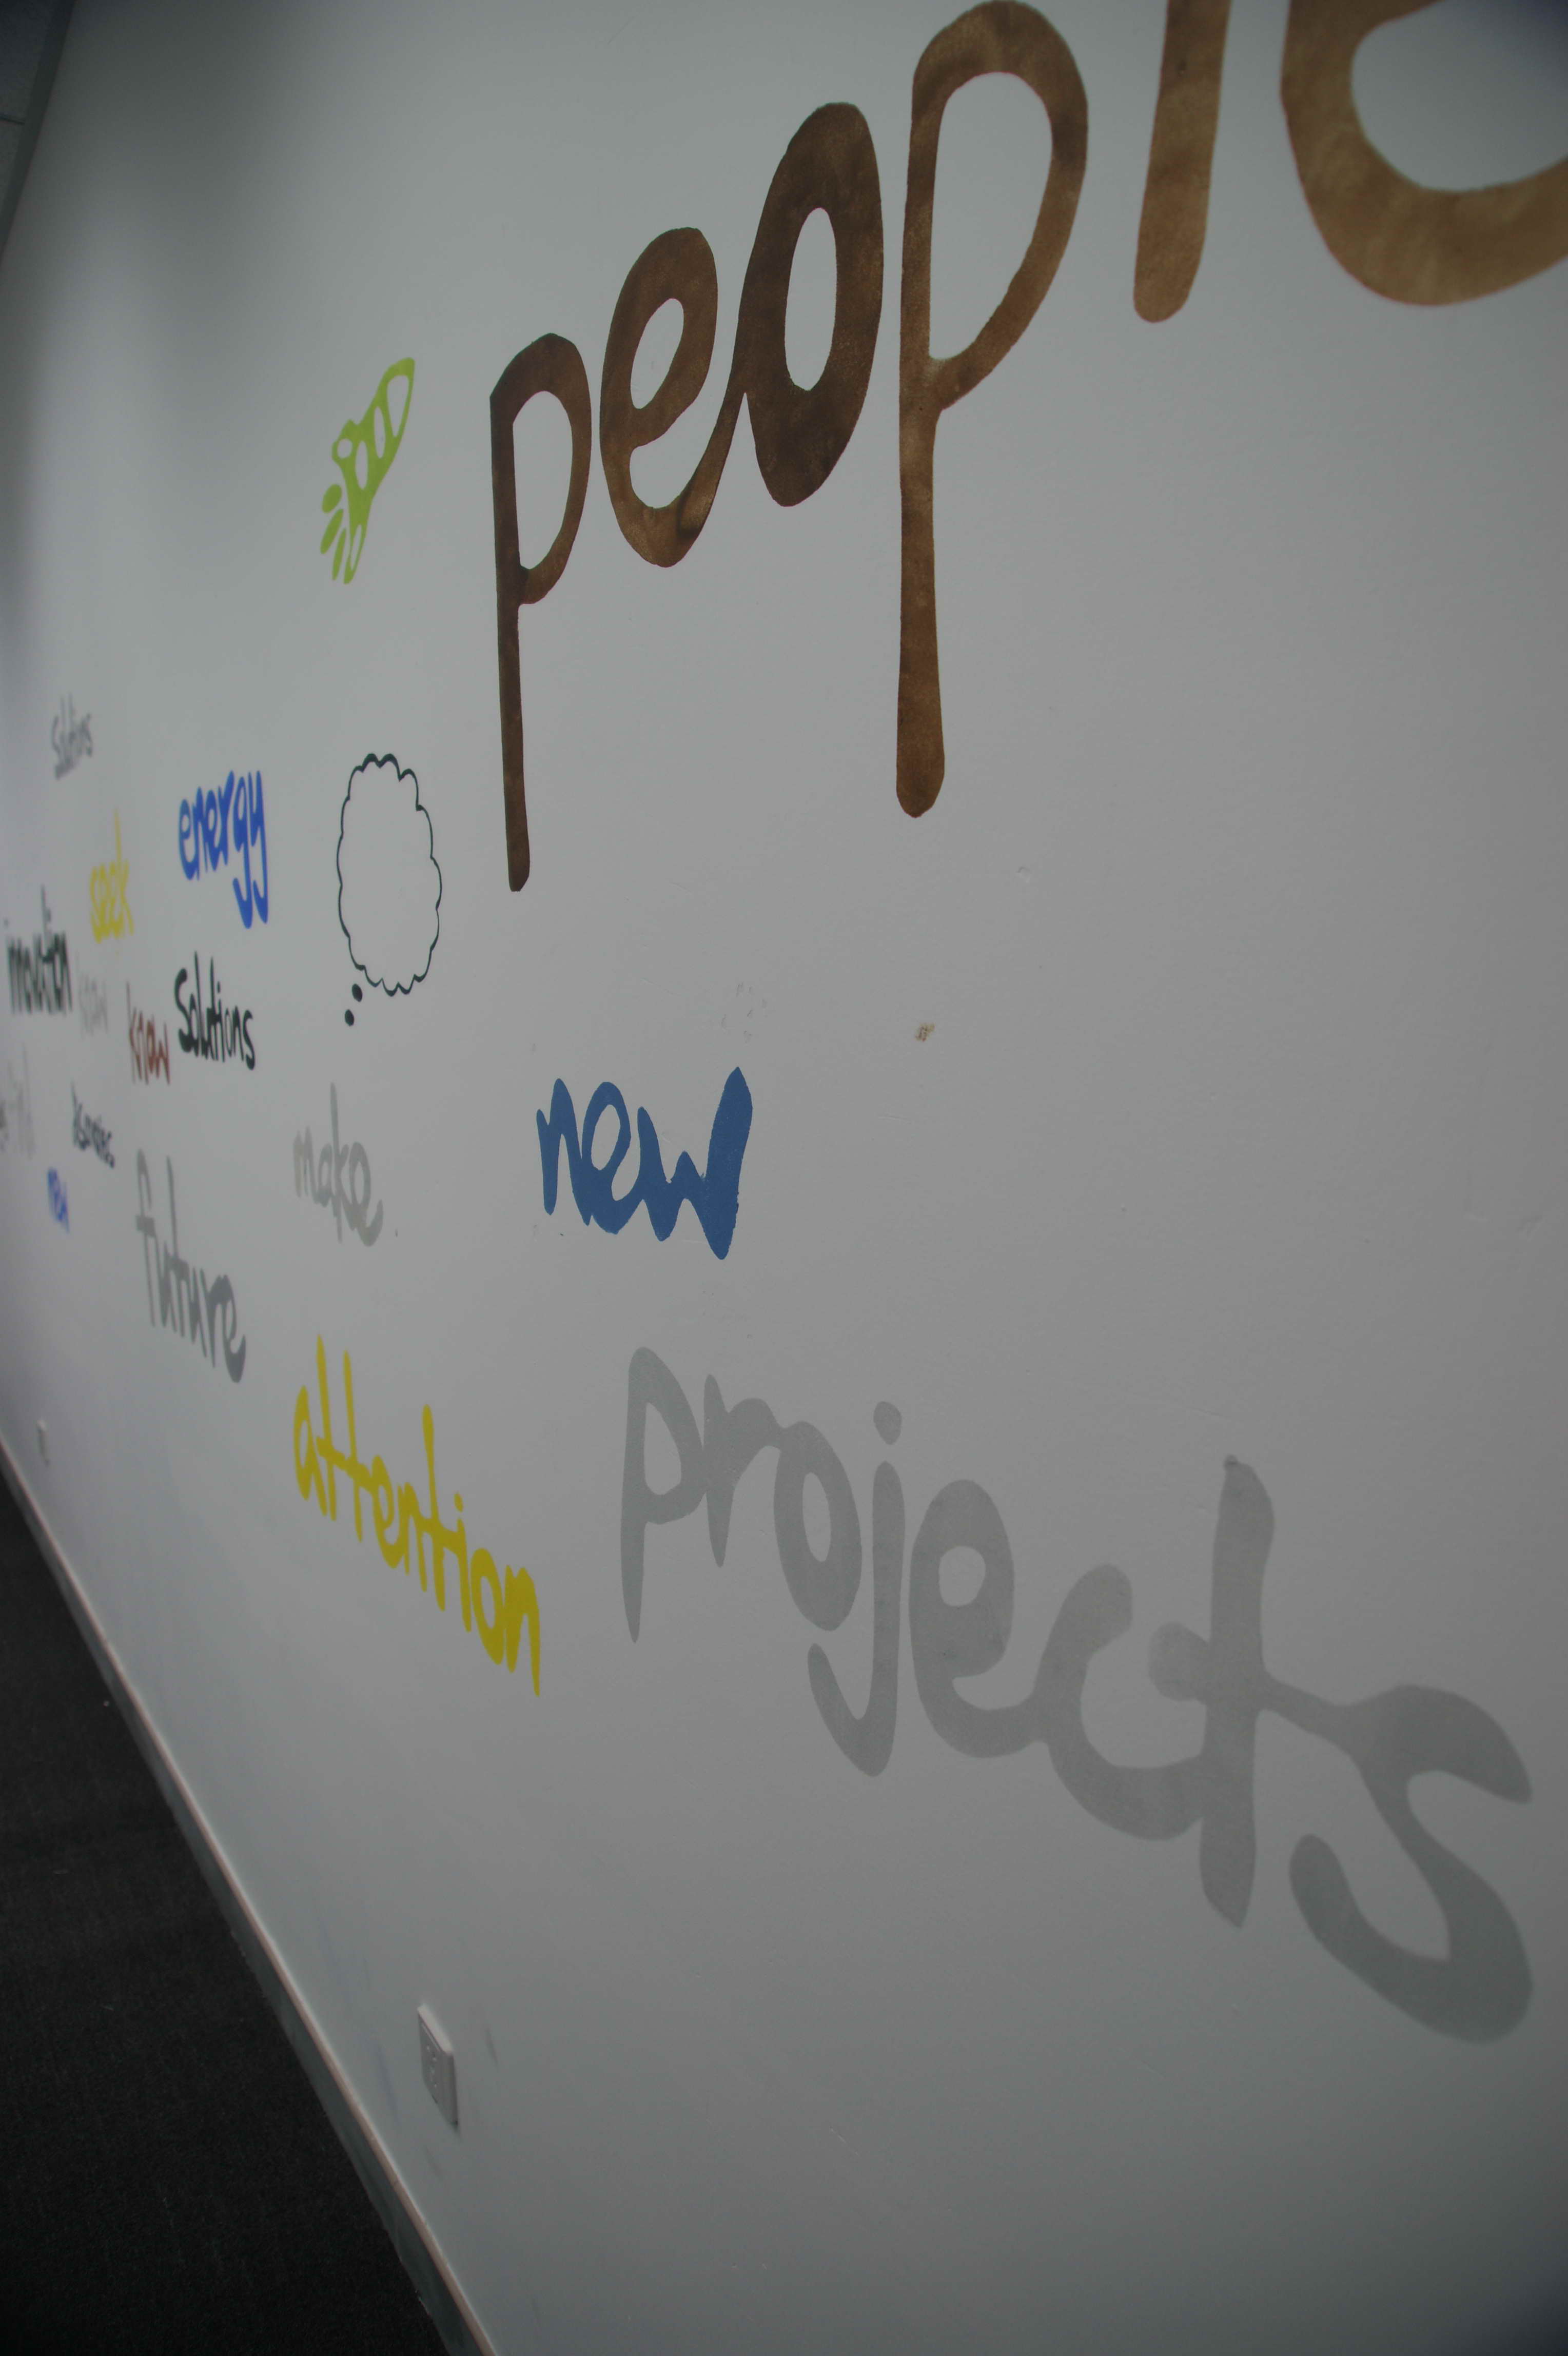 people
Solutions
energy
seek
innovation
know
know
Solutions
new
make
new
future
attention
projects